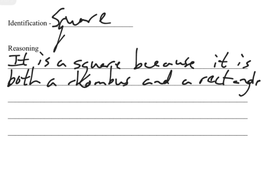 Identification - Square
Reasoning
It is a square because it is
both a rhombus and a rectangle